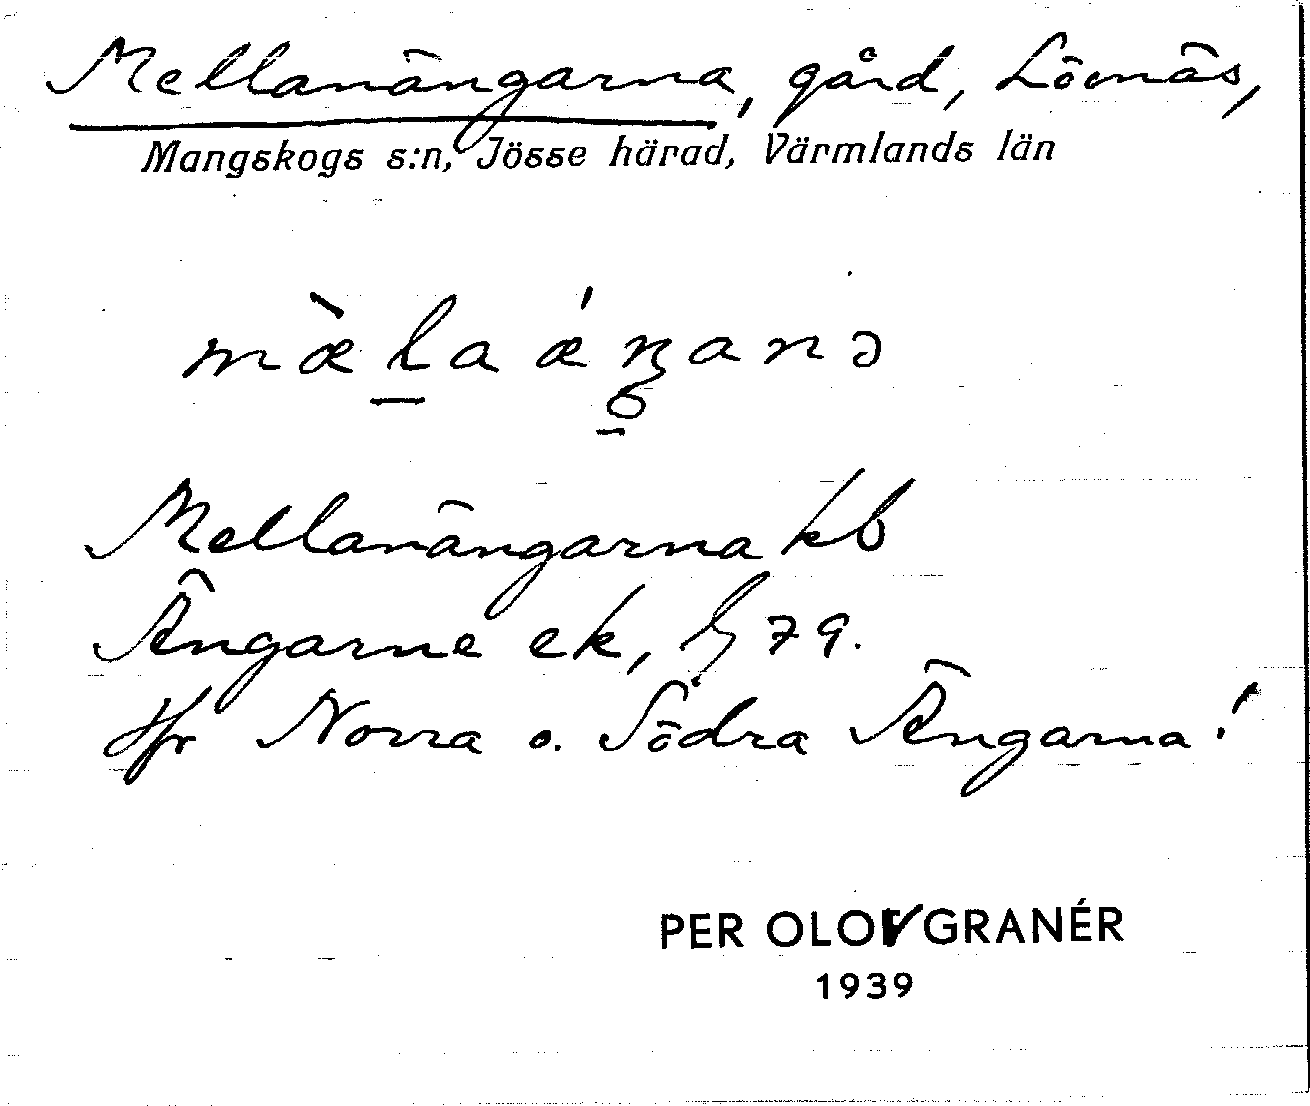 Mellanängarna, gård, Lövnäs,
Mangskogs s:n, Jösse härad, Värmlands län
mæ̀l̠aǽŋanə
Mellanängarna kb
Ängarne ek, 79.
Jfr Norra o. Södra Ängarna!
PER OLOV GRANÉR
1939